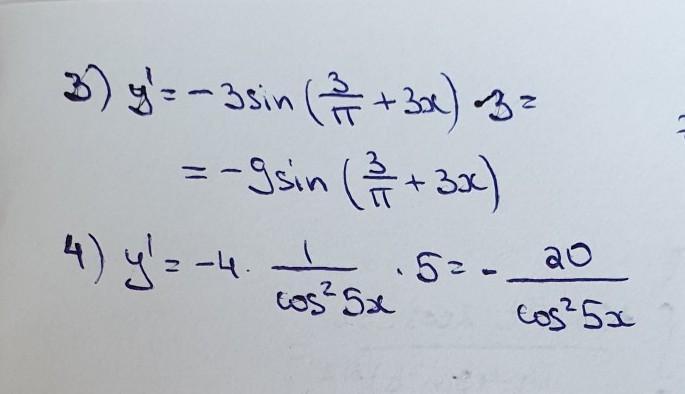 3) y' = -3sin(3/π + 3x) · 3 =
= -9sin(3/π + 3x)
4) y' = -4 · 1/cos²5x · 5 = - 20/cos²5x